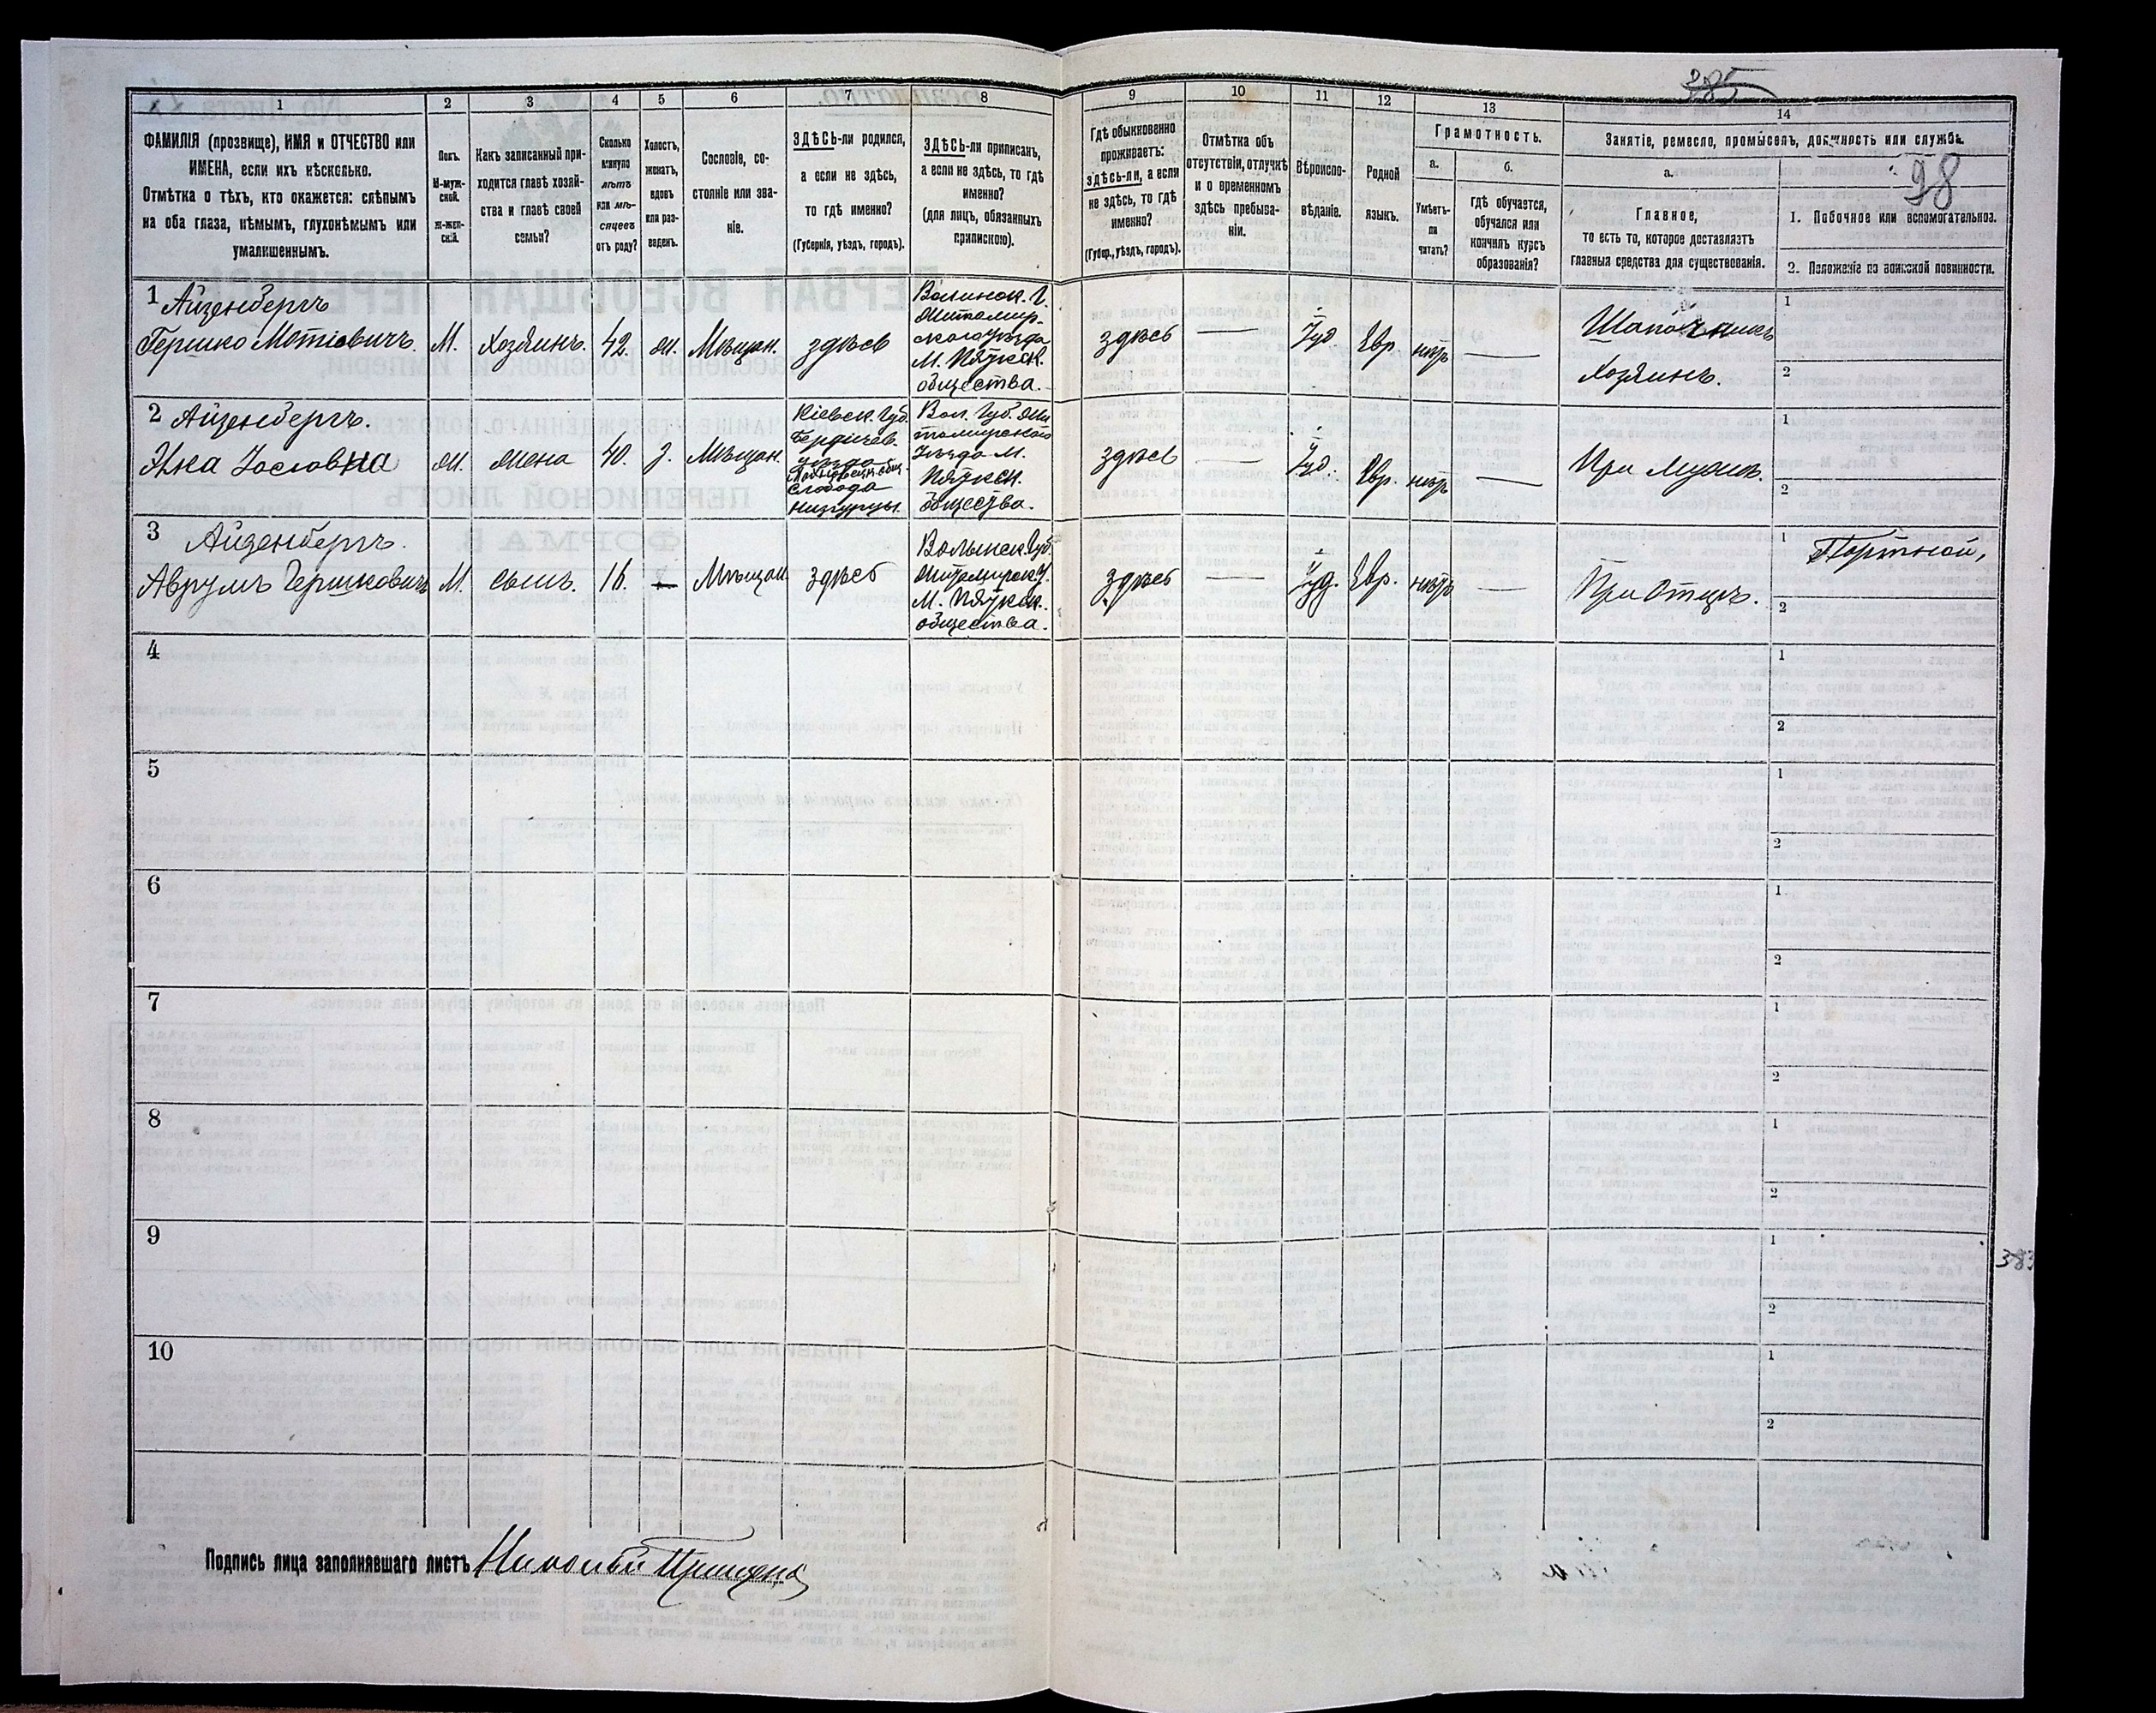 285
98
1
2
3
4
5
6
7
8
9
10
11
12
13
14
ФАМИЛІЯ (прозвище), ИМЯ и ОТЧЕСТВО или
ИМЕНА, если ихъ нѣсколько.
Отмѣтка о тѣхъ, кто окажется: слѣпымъ
на оба глаза, нѣмымъ, глухонѣмымъ или
умалишеннымъ.
Полъ.
М-муж-
ской.
Ж-жен-
скій.
Какъ записанный при-
ходится главѣ хозяй-
ства и главѣ своей
семьи?
Сколько
минуло
лѣтъ
или мѣ-
сяцевъ
отъ роду?
Холостъ,
женатъ,
вдовъ
или раз-
веденъ.
Сословіе, со-
стояніе или зва-
ніе.
ЗДѢСЬ-ли родился,
а если не здѣсь,
то гдѣ именно?
(Губернія, уѣздъ, городъ).
ЗДѢСЬ-ли приписанъ,
а если не здѣсь, то гдѣ
именно?
(для лицъ, обязанныхъ
припискою).
Гдѣ обыкновенно
проживаетъ:
здѣсь-ли, а если
не здѣсь, то гдѣ
именно?
(Губер., уѣздъ, городъ).
Отмѣтка объ
отсутствіи, отлучкѣ
и о временномъ
здѣсь пребыва-
ніи.
Вѣроиспо-
вѣданіе.
Родной
языкъ.
Грамотность.
а.
Умѣетъ-
ли
читать?
б.
гдѣ обучается,
обучался или
кончилъ курсъ
образованія?
Занятіе, ремесло, промыселъ, должность или служба.
а.
Главное,
то есть то, которое доставляетъ
главныя средства для существованія.
1. Побочное или вспомогательное.
2. Положеніе по воинской повинности.
1 Айзенбергъ
Гершко Мотіовичъ.
М.
Хозяинъ.
42.
ж.
Мѣщан.
здѣсь
Волынск. Г.
Житомир-
скаго Уѣзда
М. Пятков.
общества.
здѣсь
—
Іуд
Евр.
нѣтъ
—
Шапочникъ
Хозяинъ.
1
2
2 Айзенбергъ.
Элка Іосіовна
ж.
жена
40.
з.
Мѣщан.
Кіевск. Губ.
Бердичев.
уѣзда
Слобода
Вол. Губ. Жи
томирскаго
Уѣзда М.
Пятков.
общества.
здѣсь
—
Іуд.
Евр.
нѣтъ
—
При мужѣ.
1
2
3 Айзенбергъ.
Аврумъ Гершковичъ
М.
сынъ.
16.
—
Мѣщан.
здѣсь
Волынск. Губ.
Житомирск. У.
М. Пятков.
общества.
здѣсь
—
Іуд.
Евр.
нѣтъ
—
При Отцѣ.
1 Портной,
2
4
1
2
5
1
2
6
1
2
7
1
2
8
1
2
9
1
2
383
10
1
2
Подпись лица заполнявшаго листъ Николай